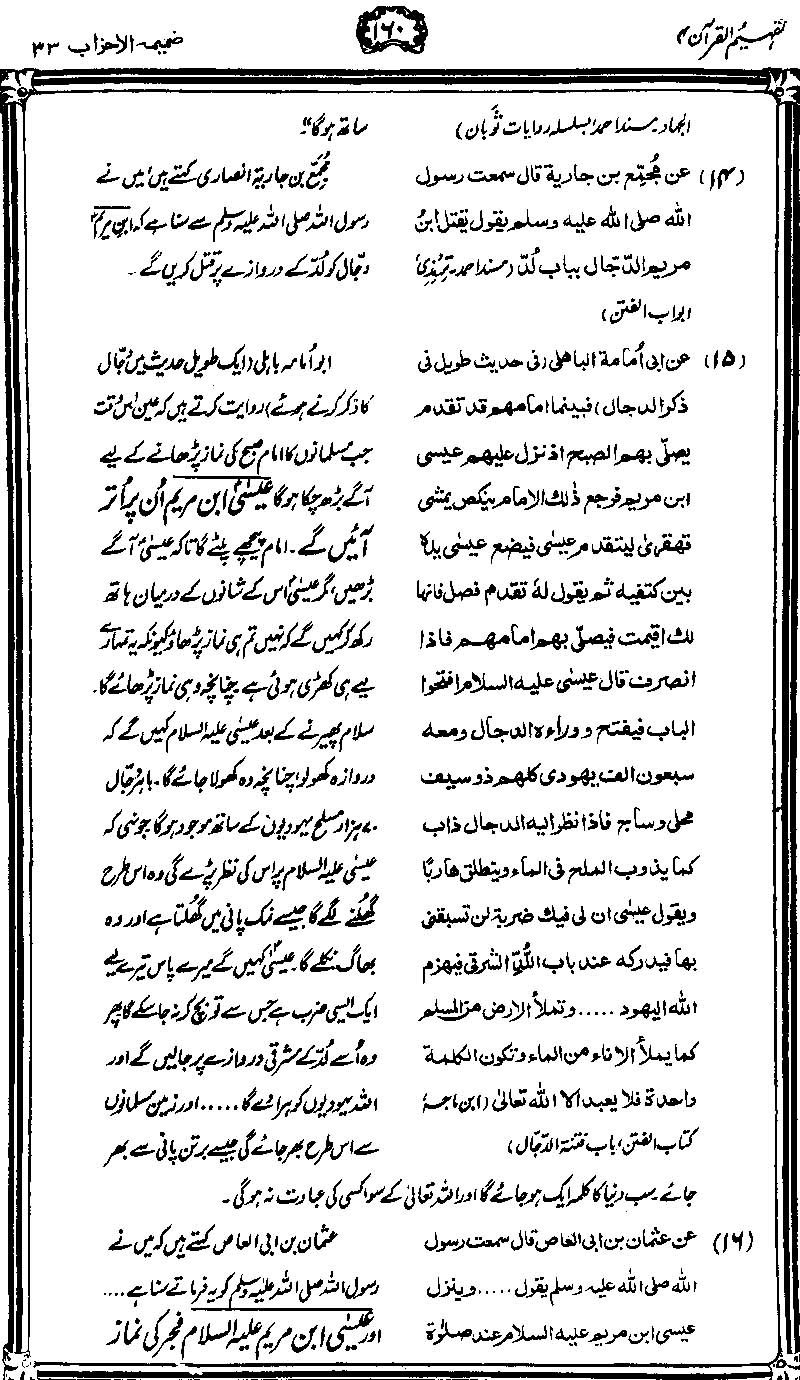 تفہیم القرآن ۴
۱۶۰
ضمیمہ الاحزاب ۳۳
الجہاد۔ مسند احمد بسلسلہ روایات ثوبان)
ساتھ ہوگا"۔
(۱۴) عن مُجمّع بن جارية قال سمعت رسول
الله صلى الله عليه وسلم يقول يقتل ابنُ
مريم الدّجال بباب لُدّ (مسند احمد۔ ترمذی،
ابواب الفتن)
مُجَمِّع بن جاریۃ انصاری کہتے ہیں میں نے
رسول اللہ صلی اللہ علیہ وسلم سے سنا ہے کہ ابن مریم
دجّال کو لُدّ کے دروازے پر قتل کریں گے۔
(۱۵) عن ابی اُمامة الباھلی (فی حدیث طویل فی
ذکر الدجال) فبینما امامھم قد تقدم
یصلّی بھم الصبح اذ نزل علیھم عیسی
ابن مریم فرجع ذٰلک الامام ینکص یمشی
قھقری لیتقدم عیسٰی فیضع عیسٰی یدہ
بین کتفیہ ثم یقول لہٗ تقدم فصل فانھا
لک اقیمت فیصلّی بھم امامھم فاذا
انصرف قال عیسٰی علیہ السلام افتحوا
الباب فیفتح و وراءہ الدجال ومعہ
سبعون الف یھودی کلھم ذو سیف
محلی و ساج فاذا نظر الیہ الدجال ذاب
کما یذوب الملح فی الماء وینطلق ھاربًا
ویقول عیسٰی ان لی فیك ضربة لن تسبقنی
بھا فیدرکہ عند باب اللُّدّ الشرقی فیھزم
اللہ الیھود ..... وتملأ الارض من المسلم
کما یملأ الاناء من الماء وتکون الکلمة
واحدة فلا یعبد الا اللہ تعالیٰ (ابن ماجہ
کتاب الفتن، باب فتنۃ الدّجال)
ابو اُمامہ باہلی (ایک طویل حدیث میں دجّال
کا ذکر کرتے ہوئے) روایت کرتے ہیں کہ عین اس وقت
جب مسلمانوں کا امام صبح کی نماز پڑھانے کے لیے
آگے بڑھ چکا ہوگا عیسٰیؑ ابن مریم اُن پر اُتر
آئیں گے۔ امام پیچھے پلٹے گا تاکہ عیسٰیؑ آگے
بڑھیں، مگر عیسٰیؑ اس کے شانوں کے درمیان ہاتھ
رکھ کر کہیں گے کہ نہیں تم ہی نماز پڑھاؤ کیونکہ یہ تمہارے
لیے ہی کھڑی ہوئی ہے چنانچہ وہی نماز پڑھائے گا۔
سلام پھیرنے کے بعد عیسٰی علیہ السلام کہیں گے کہ
دروازہ کھولو، چنانچہ وہ کھولا جائے گا۔ باہر دجّال
۷۰ ہزار مسلح یہودیوں کے ساتھ موجود ہوگا جونہی کہ
عیسٰی علیہ السلام پر اس کی نظر پڑے گی وہ اس طرح
گھُلنے لگے گا جیسے نمک پانی میں گھُلتا ہے اور وہ
بھاگ نکلے گا۔ عیسٰیؑ کہیں گے میرے پاس تیرے لیے
ایک ایسی ضرب ہے جس سے تو بچ کر نہ جا سکے گا پھر
وہ اُسے لُدّ کے مشرقی دروازے پر جالیں گے اور
اللہ یہودیوں کو ہرا دے گا ..... اور زمین مسلمانوں
سے اس طرح بھر جائے گی جیسے برتن پانی سے بھر
جائے۔ سب دنیا کا کلمہ ایک ہو جائے گا اور اللہ تعالیٰ کے سوا کسی کی عبادت نہ ہوگی۔
(۱۶) عن عثمان بن ابی العاص قال سمعت رسول
اللہ صلی اللہ علیہ وسلم یقول ..... وینزل
عیسی ابن مریم علیہ السلام عند صلوٰة
عثمان بن ابی العاص کہتے ہیں کہ میں نے
رسول اللہ صلی اللہ علیہ وسلم کو یہ فرماتے سنا ہے ....
اور عیسٰی ابن مریم علیہ السلام فجر کی نماز